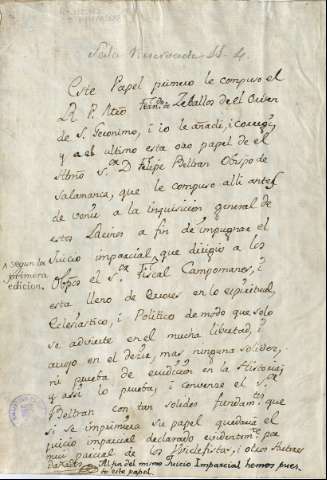 Este Papel primero le compuso el
R. P. Mtrō Fern.do Zeballos de el Orden
de S. Geronimo, i io le añadi, i corregi,
y a el ultimo esta otro papel de el
Illmō S.or D. Felipe Beltran Obispo de
Salamanca, que le compuso alli antes
de venir a la Inquisicion general de
estos Reinos a fin de impugnar el
Juicio imparcial, que dirigio a los
Obispos el S.or Fiscal Campomanes, i
^ segun la
primera
edicion.
esta lleno de errores en lo espiritual,
Eclesiastico, i Politico de modo que solo
se advierte en el mucha libertad, i
arrojo en el decir, mas ninguna solidez,
ni prueba de erudicion en la Historia;
y assi lo prueba, i convence el S.or
Beltran con tan solidos fundam.tos que
si se imprimiera su papel quedaria el
juicio imparcial declarado evidentem.te por
mui parcial de los
i otros
Al fin del mismo Juicio Imparcial hemos pues-
to este papel.